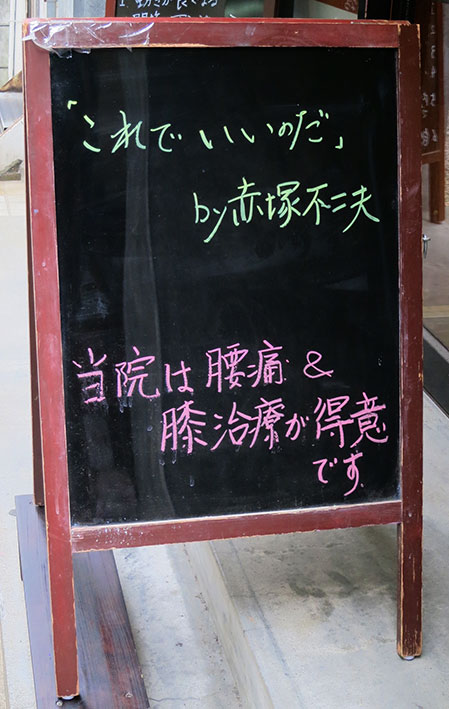 1. 動きが良くなる
「これで いいのだ」
by 赤塚不二夫
当院は 腰痛 &
膝治療が得意
です